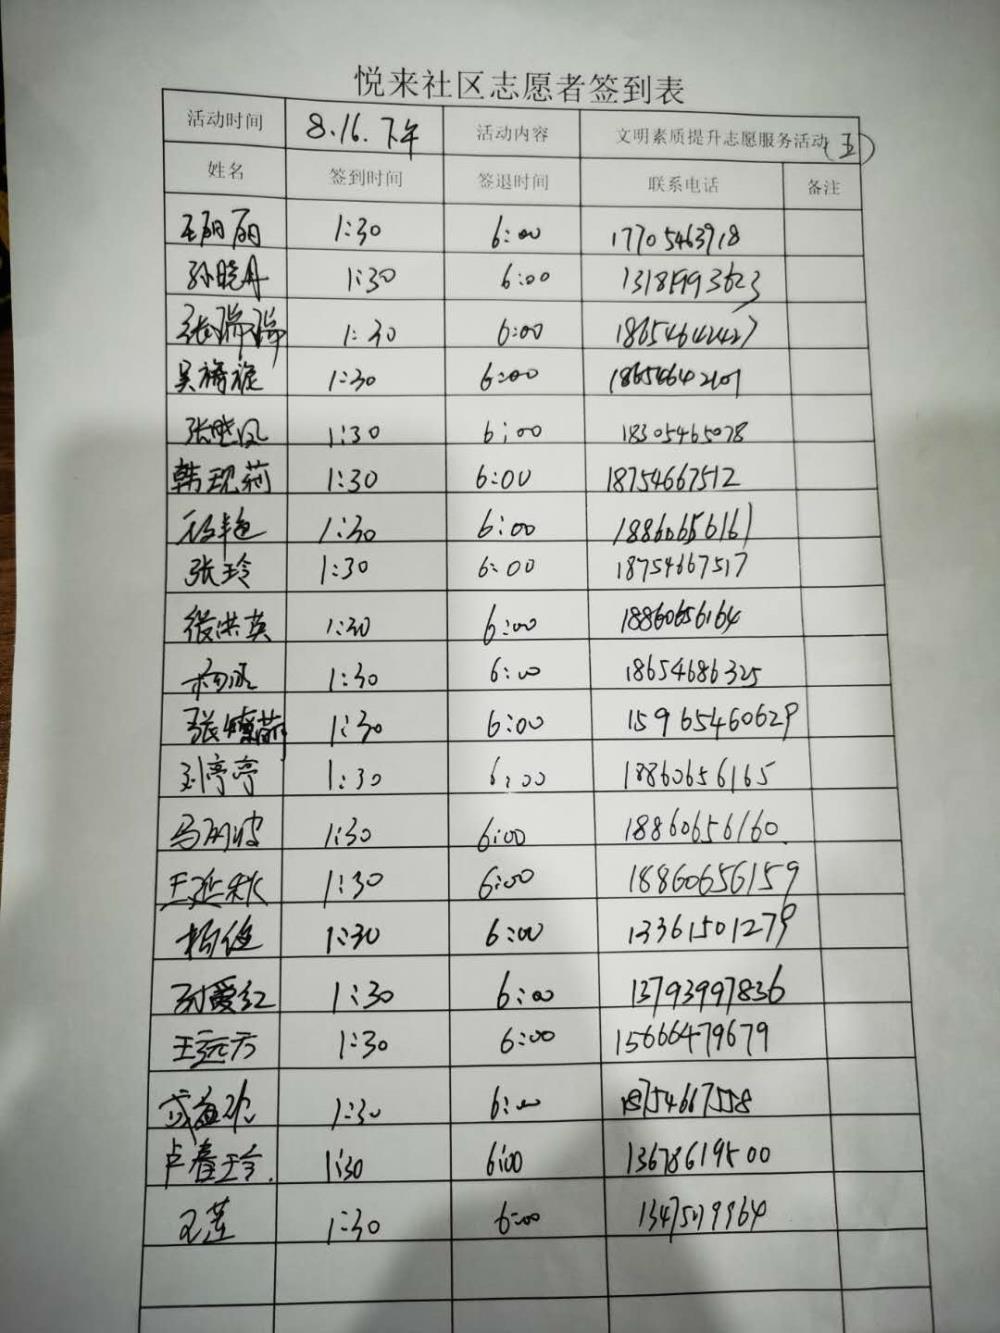 悦来社区志愿者签到表
活动时间 8.16.下午 活动内容 文明素质提升志愿服务活动(五)
姓名 签到时间 签退时间 联系电话 备注
王丽丽 1:30 6:00 17705463718
孙晓丹 1:30 6:00
张瑞瑞 1:30 6:00 18654642427
吴 1:30 6:00 18654642101
张晓凤 1:30 6:00 18305465078
韩现荷 1:30 6:00 18754667512
1:30 6:00 18860656161
张玲 1:30 6:00 18754667517
洪英 1:30 6:00 18860656164
1:30 6:00 18654686325
张 1:30 6:00 15965460629
刘亭亭 1:30 6:00 18860656165
马丽波 1:30 6:00 18860656160
王延秋 1:30 6:00 18860656159
杨健 1:30 6:00 13361501279
爱红 1:30 6:00 13793997836
王远方 1:30 6:00 15666479679
1:30 6:00 18754667558
卢春玲 1:30 6:00 13678619500
王莲 1:30 6:00